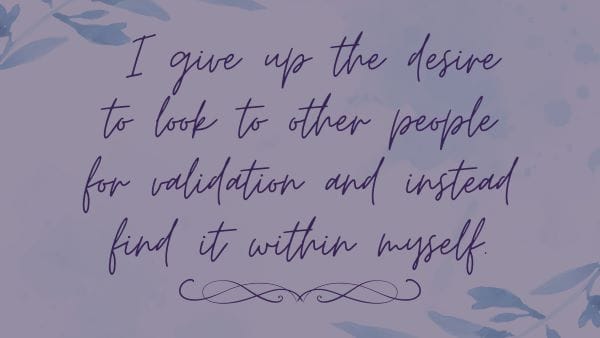 I give up the desire
to look to other people
for validation and instead
find it within myself.